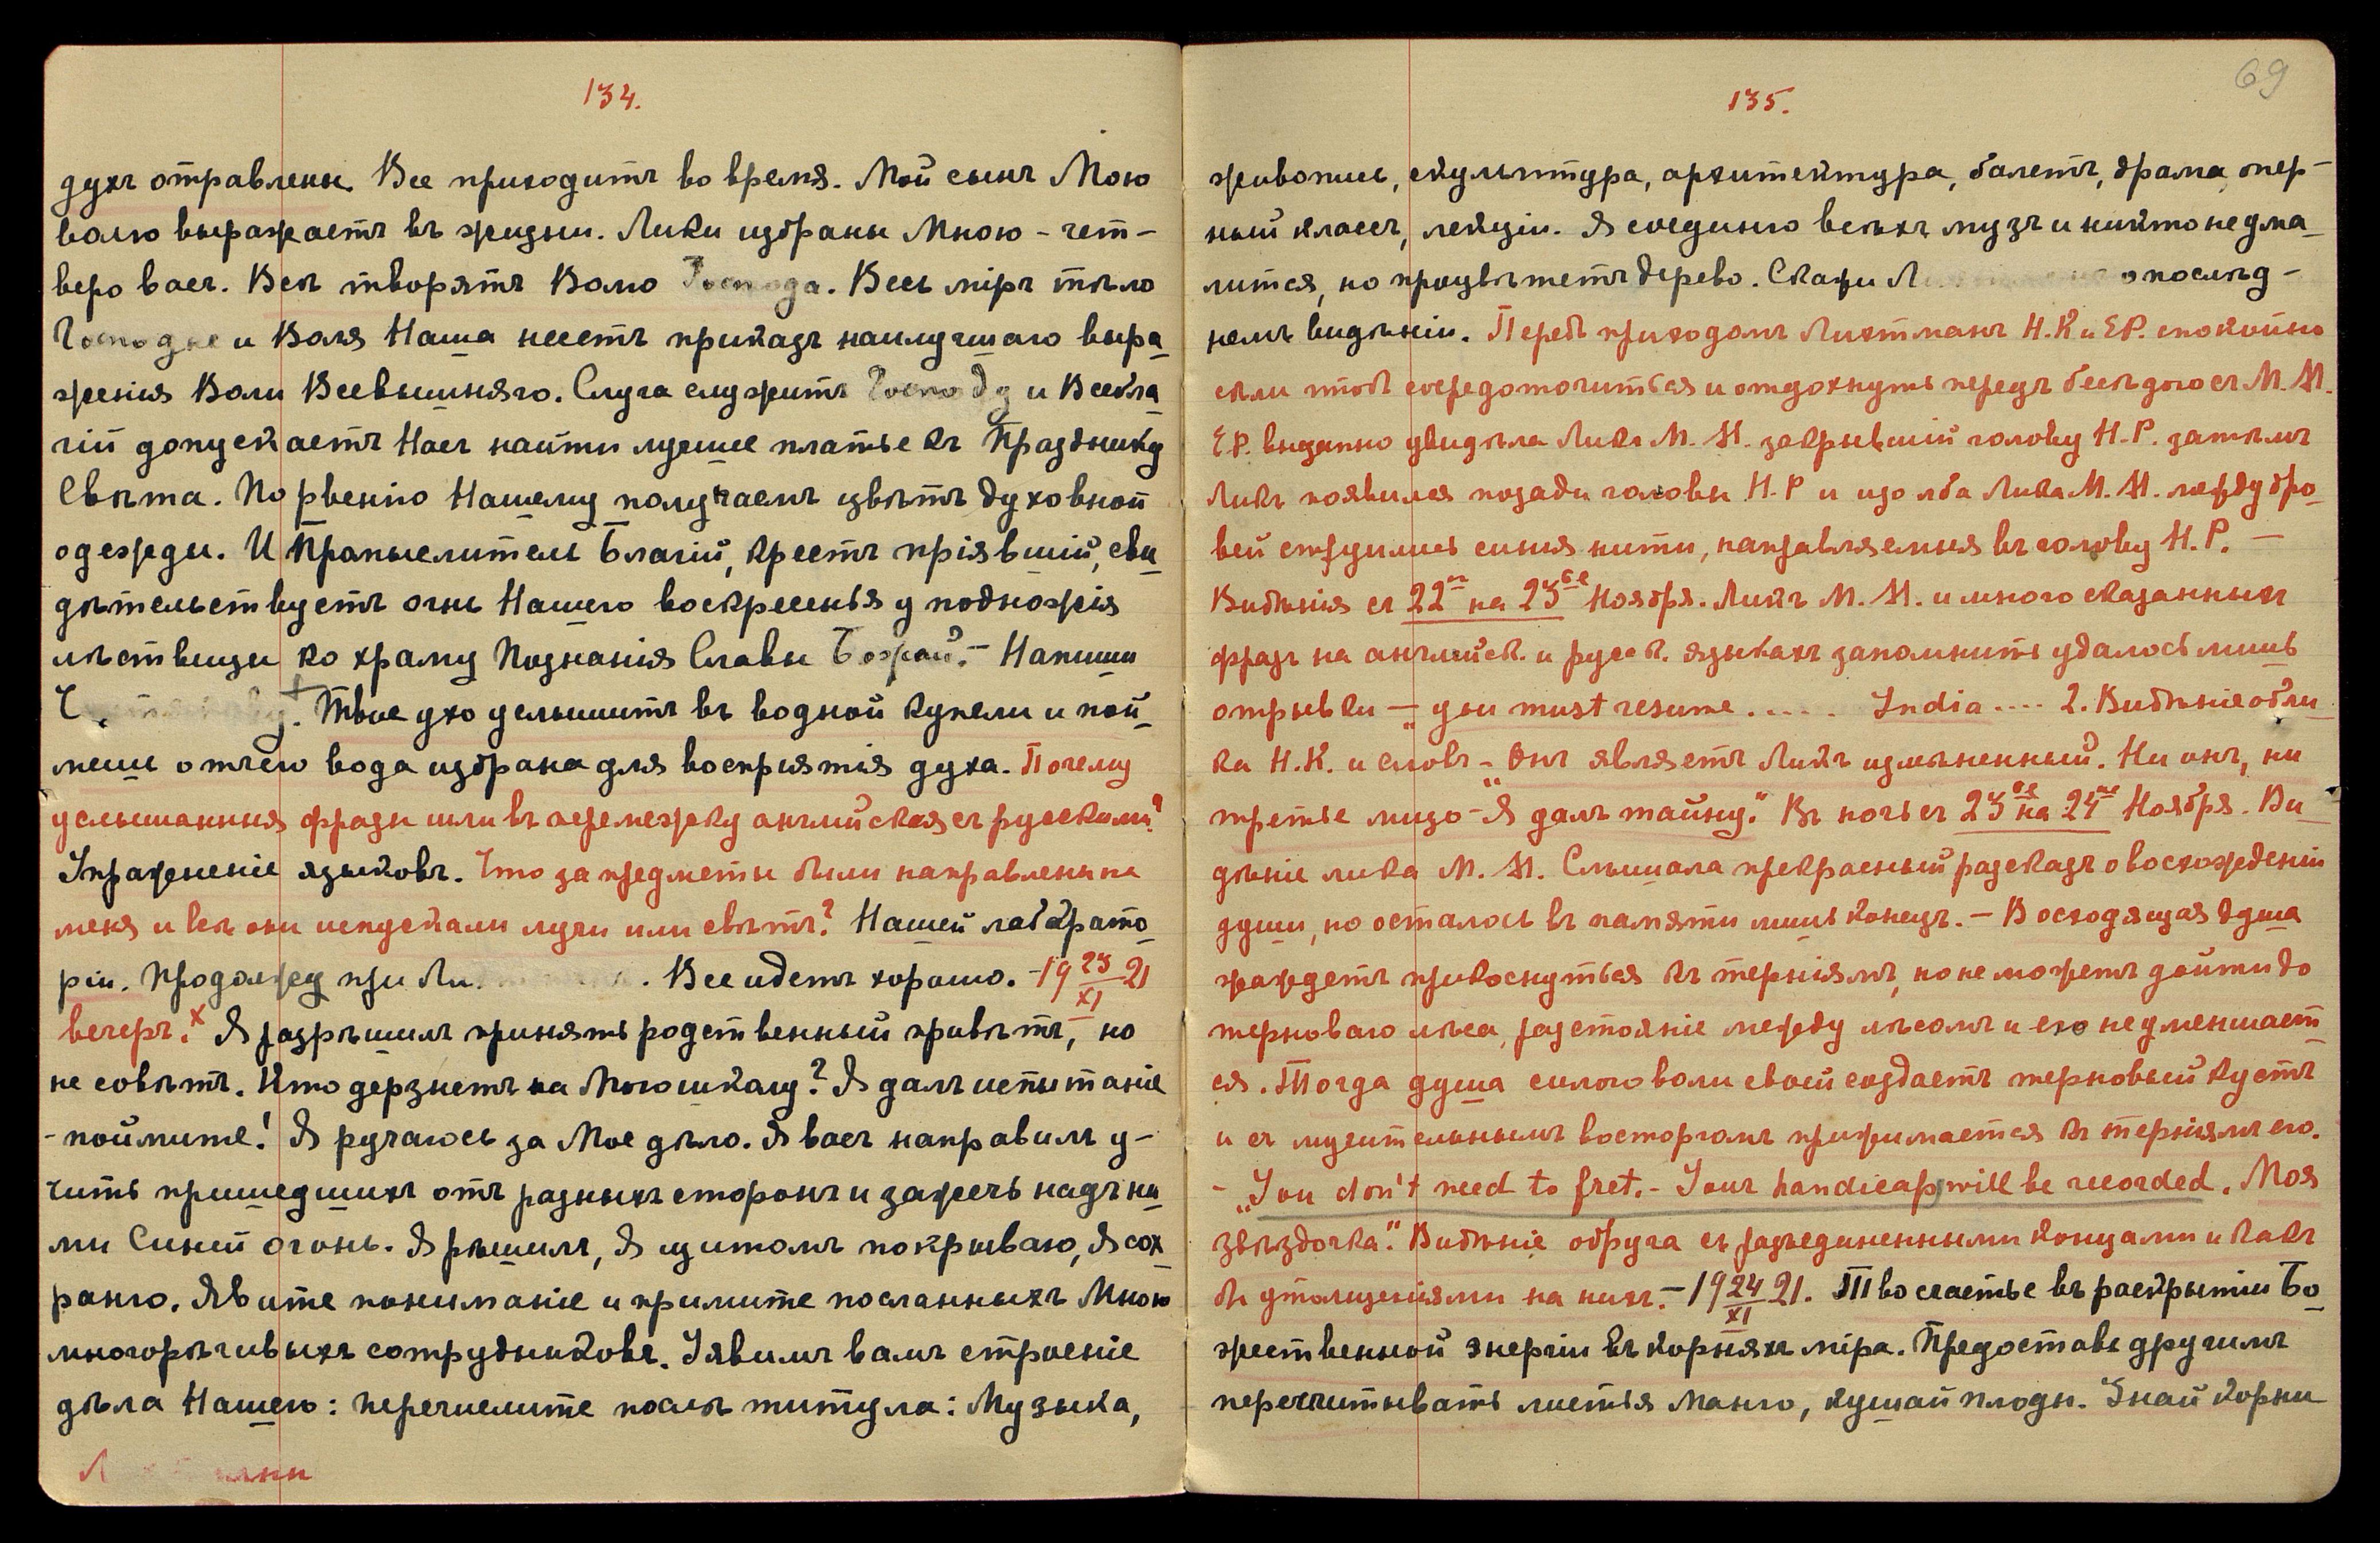 134.
духъ отравлены. Все приходитъ во время. Мой сынъ Мою
волю выражаетъ въ жизни. Лики избраны Мною – чет–
веро васъ. Всѣ творятъ Волю Господа. Весь міръ тѣло
Господне и Воля Наша несетъ приказъ наилучшаго выра
женія Воли Всевышняго. Слуга служитъ Господу и Всебла
гій допускаетъ Насъ найти лучшее платье къ Празднику
Свѣта. По рвенію Нашему получаемъ цвѣтъ духовной
одежды. И Промыслитель Благій, крестъ пріявшій, сви
дѣтельствуетъ огнь Нашего воскресенья у подножія
лѣствицы ко храму Познанія Славы Божьей. – Напиши
Твое ухо услышитъ въ водной купели и пой
мешь отчего вода избрана для воспріятія духа. Почему
услышанныя фразы шли въ перемежку английская съ русскими?
Упражненіе языковъ. Что за предметы были направлены на
меня и всѣ они испускали лучи или свѣтъ? Нашей лаборато
ріи. Продолжу при Ли . Все идетъ хорошо. – 19 23/XI 21
вечеръ. x Я разрѣшилъ принять родственный привѣтъ, но
не совѣтъ. Кто дерзнетъ на Мою шкалу? Я далъ испытаніе
– поймите! Я ручаюсь за Мое дѣло. Я васъ направилъ у–
чить пришедшихъ отъ разныхъ сторонъ и зажечь надъ ни
ми Синій огонь. Я рѣшилъ, Я щитомъ покрываю, Я сох
раню. Явите пониманіе и примите посланныхъ Мною
многорѣчивыхъ сотрудниковъ. Уявимъ вамъ строеніе
дѣла Нашего: перечислите послѣ титула: Музыка,
69
135.
живопись, скульптура, архитектура, балетъ, драма, опер–
ный классъ, лекціи. Я соединю всѣхъ музъ и никто не ума
лится, но процвѣтетъ дерево. Скажи Л о послѣд–
немъ видѣніи. Передъ приходомъ Лихтманъ Н.К и Е.Р. спокойно
сѣли чтоб сосредоточиться и отдохнуть передъ бесѣдою съ М. М.
Е.Р. внезапно увидѣла Ликъ М. М. закрывшій голову Н.Р. затѣмъ
Ликъ появился позади головы Н.Р и изо лба Лика М. М. между бро
вей струились синія нити, направляемыя въ голову Н.Р. –
Видѣнія съ 22го на 23ье Ноября. Ликъ М. М. и много сказанныхъ
фразъ на английск. и русск. языкахъ запомнить удалось лишь
отрывки – „you must resume ..... India .... 2. Видѣніе обли
ка Н.К. и словъ – „Онъ являетъ Ликъ измѣненный. Ни онъ, ни
третье лицо – Я далъ тайну.“ Въ ночь съ 23го на 24ое Ноября. Ви
дѣніе лика М. М. Слышала прекрасный разсказъ о восхожденіи
души, но осталось въ памяти лишь конецъ. – Восходящая душа
жаждетъ прикоснуться къ терніямъ, но не можетъ дойти до
терноваго лѣса, разстояніе между лѣсомъ и ею не уменшает
ся. Тогда душа силою воли своей создаетъ терновый кустъ
и съ мучительнымъ восторгомъ прижимается къ терніямъ его.
– „You don't need to fret. – Your handicap will be recorded. Моя
звѣздочка.“ Видѣніе обруча съ разъединенными концами и какъ
бы утолщеніями на нихъ. – 19 24/XI 21. Твое счастье въ раскрытіи Бо
жественной энергіи въ корняхъ міра. Предоставь другимъ
пересчитывать листья манго, кушай плоды. Знай корни